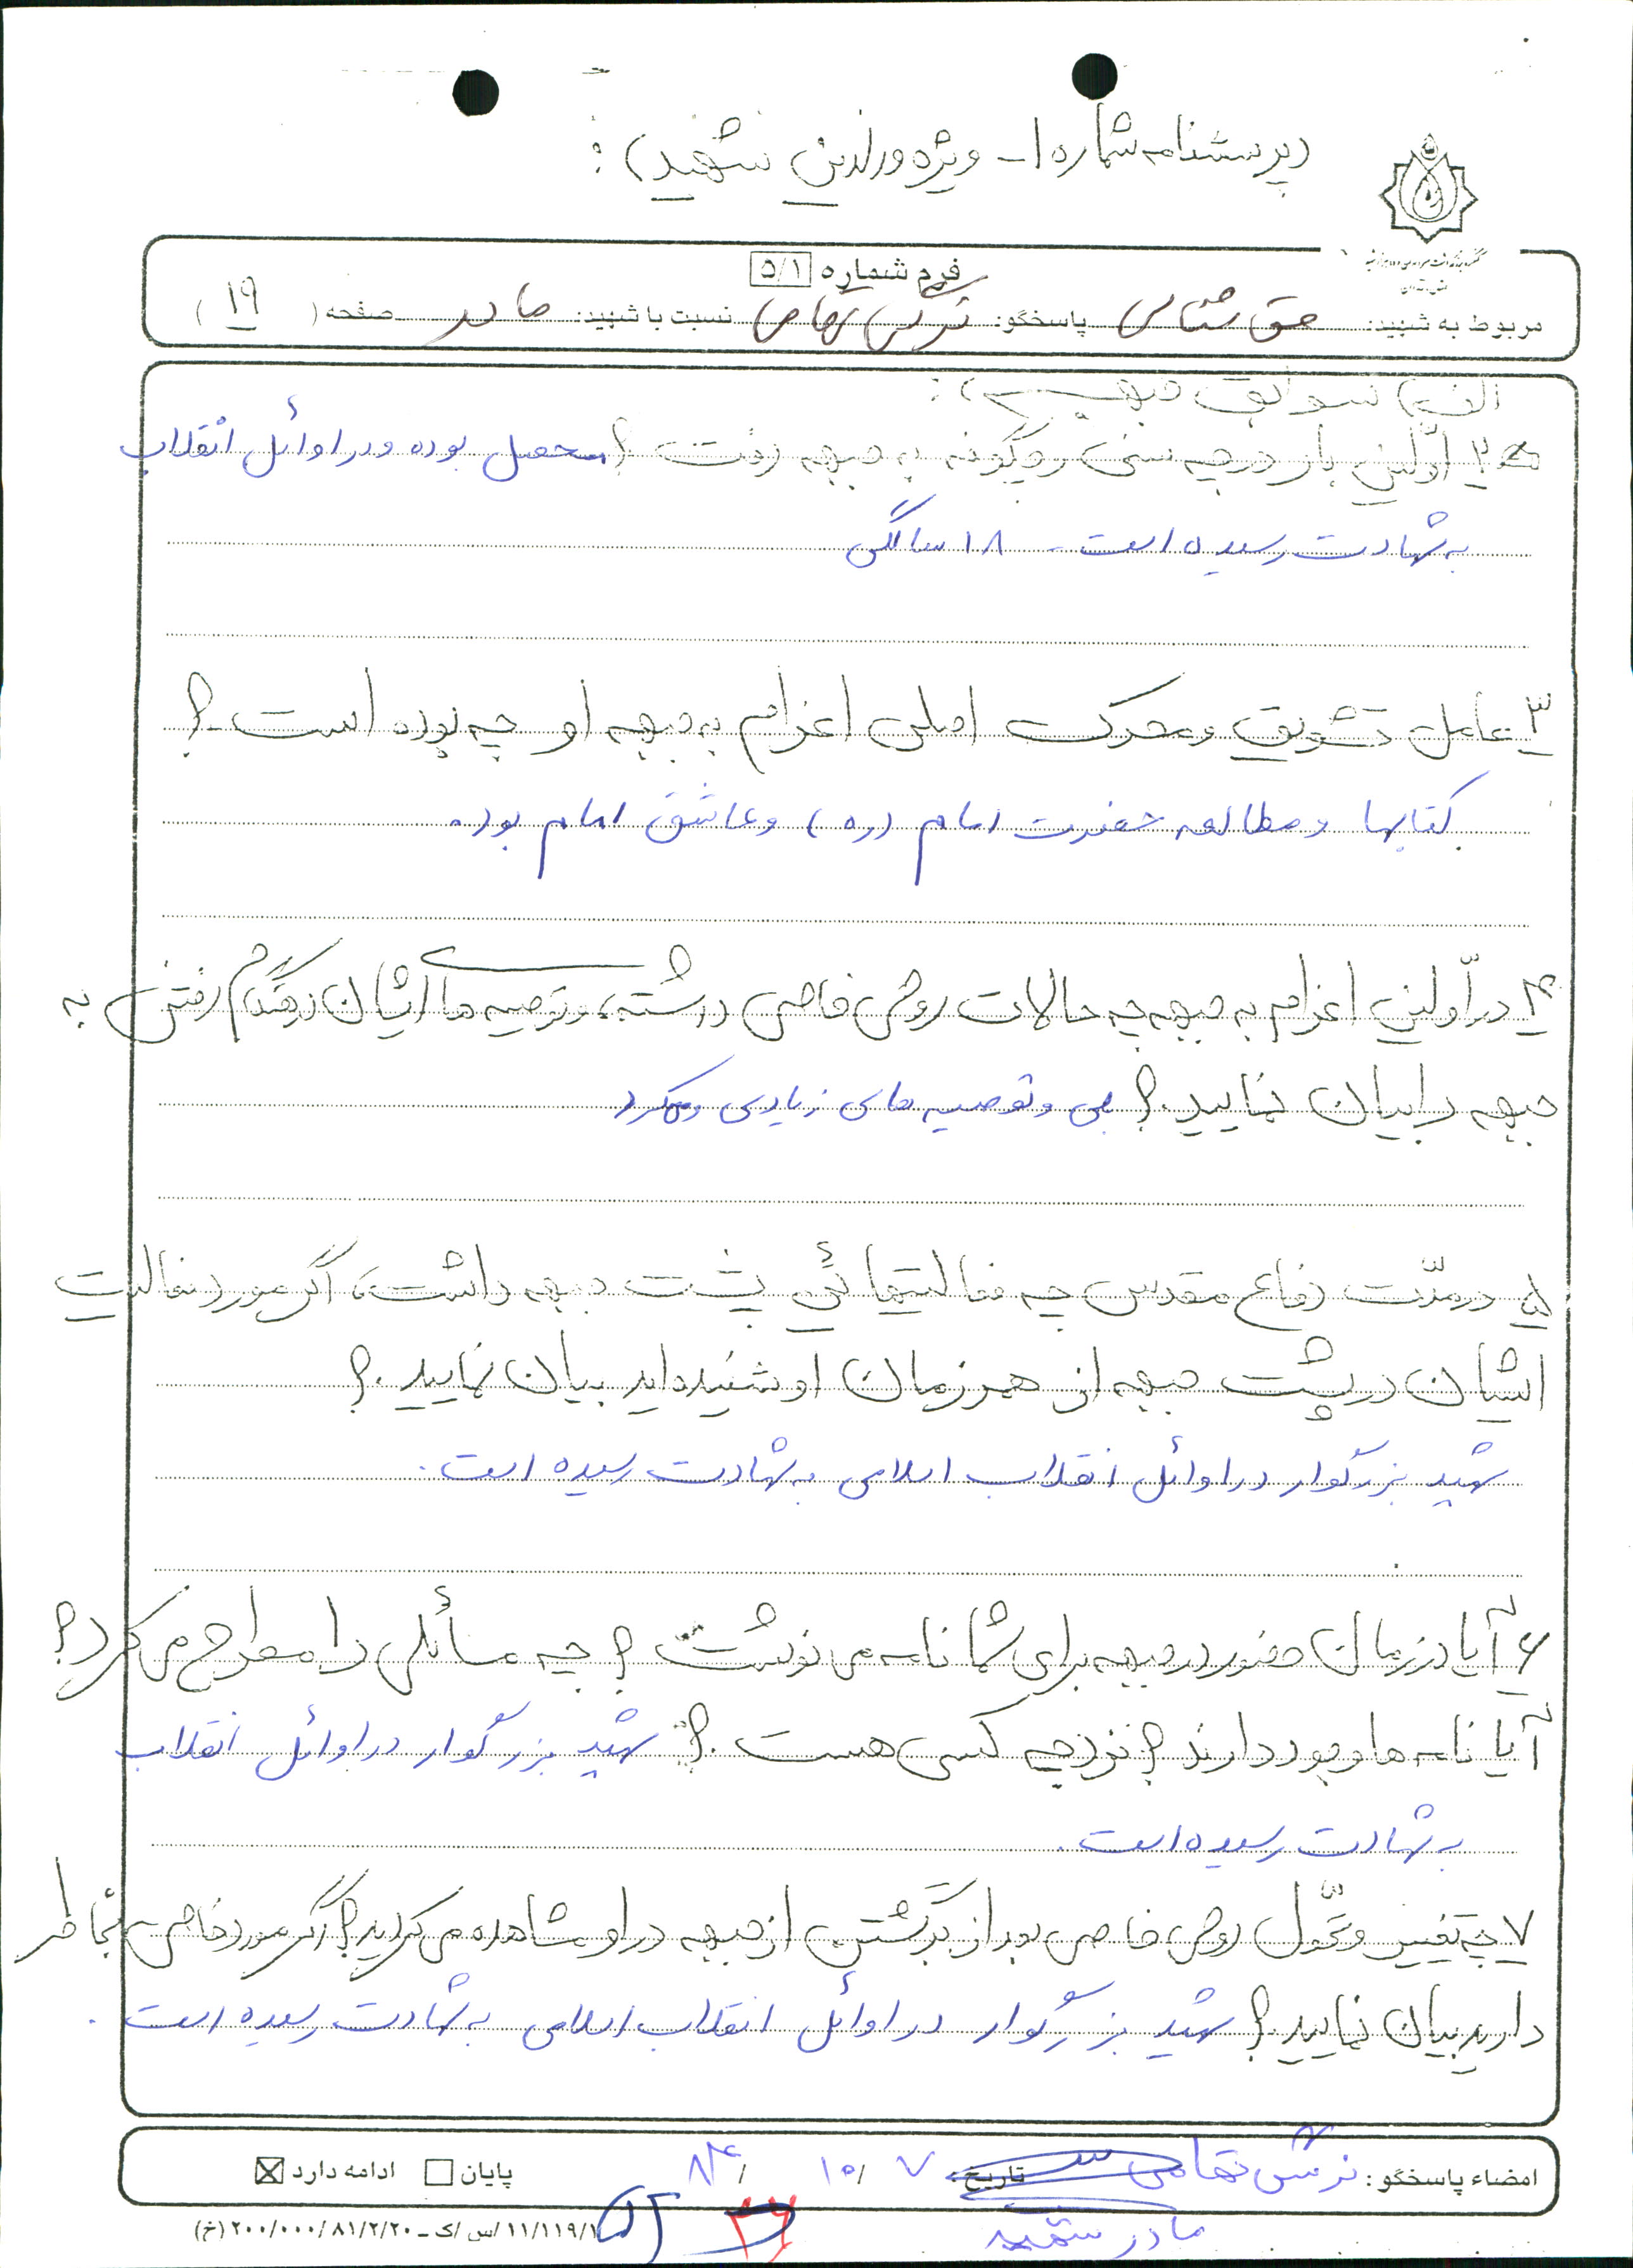 (پرسشنامه شماره ۱- ویژه والدین شهید):
فرم شماره ۵/۱
مربوط به شهید: حق شناس پاسخگو: نرگس تهامی نسبت با شهید: مادر صفحه (۱۹)
الف) سوابق جبهه:
۲- اوّلین بار در چه سنی و چگونه به جبهه رفت؟ محصل بوده و در اوائل انقلاب
به شهادت رسیده است - ۱۸ سالگی
۳- عامل تشویق و محرک اصلی اعزام به جبهه او چه بوده است.؟
کتابها و مطالعه حضرت امام (ره) و عاشق امام بود.
۴- در اوّلین اعزام به جبهه چه حالات روحی خاصی داشته، و توصیه ها ایشان هنگام رفتن به
جبهه را بیان نمایید.؟ بلی و توصیه های زیادی میکرد
۵- در مدّت دفاع مقدس چه فعالیتهائی پشت جبهه داشت، اگر مورد فعالیت
ایشان در پشت جبهه از همرزمان او شنیده اید بیان نمایید.؟
شهید بزرگوار در اوائل انقلاب اسلامی به شهادت رسیده است.
۶- آیا در زمان حضور در جبهه برای شما نامه می نوشت؟ چه مسائلی را مطرح می کرد؟
آیا نامه ها وجود دارند؟ نزد چه کسی هست.؟ شهید بزرگوار در اوائل انقلاب
به شهادت رسیده است.
۷- چه تغییر و تحّول روحی خاصی بعد از برگشتن از جبهه در او مشاهده می کردید؟ اگر مورد خاصی بخاطر
دارید بیان نمایید.؟ شهید بزرگوار در اوائل انقلاب اسلامی به شهادت رسیده است.
امضاء پاسخگو: نرگس تهامی تاریخ: ۷ /۱۰ /۸۴ پایان ادامه دارد
مادر شهید
۱۱/۱۱۹/۱/س/ک - ۸۱/۲/۲۰/ ۲۰۰/۰۰۰ (خ)